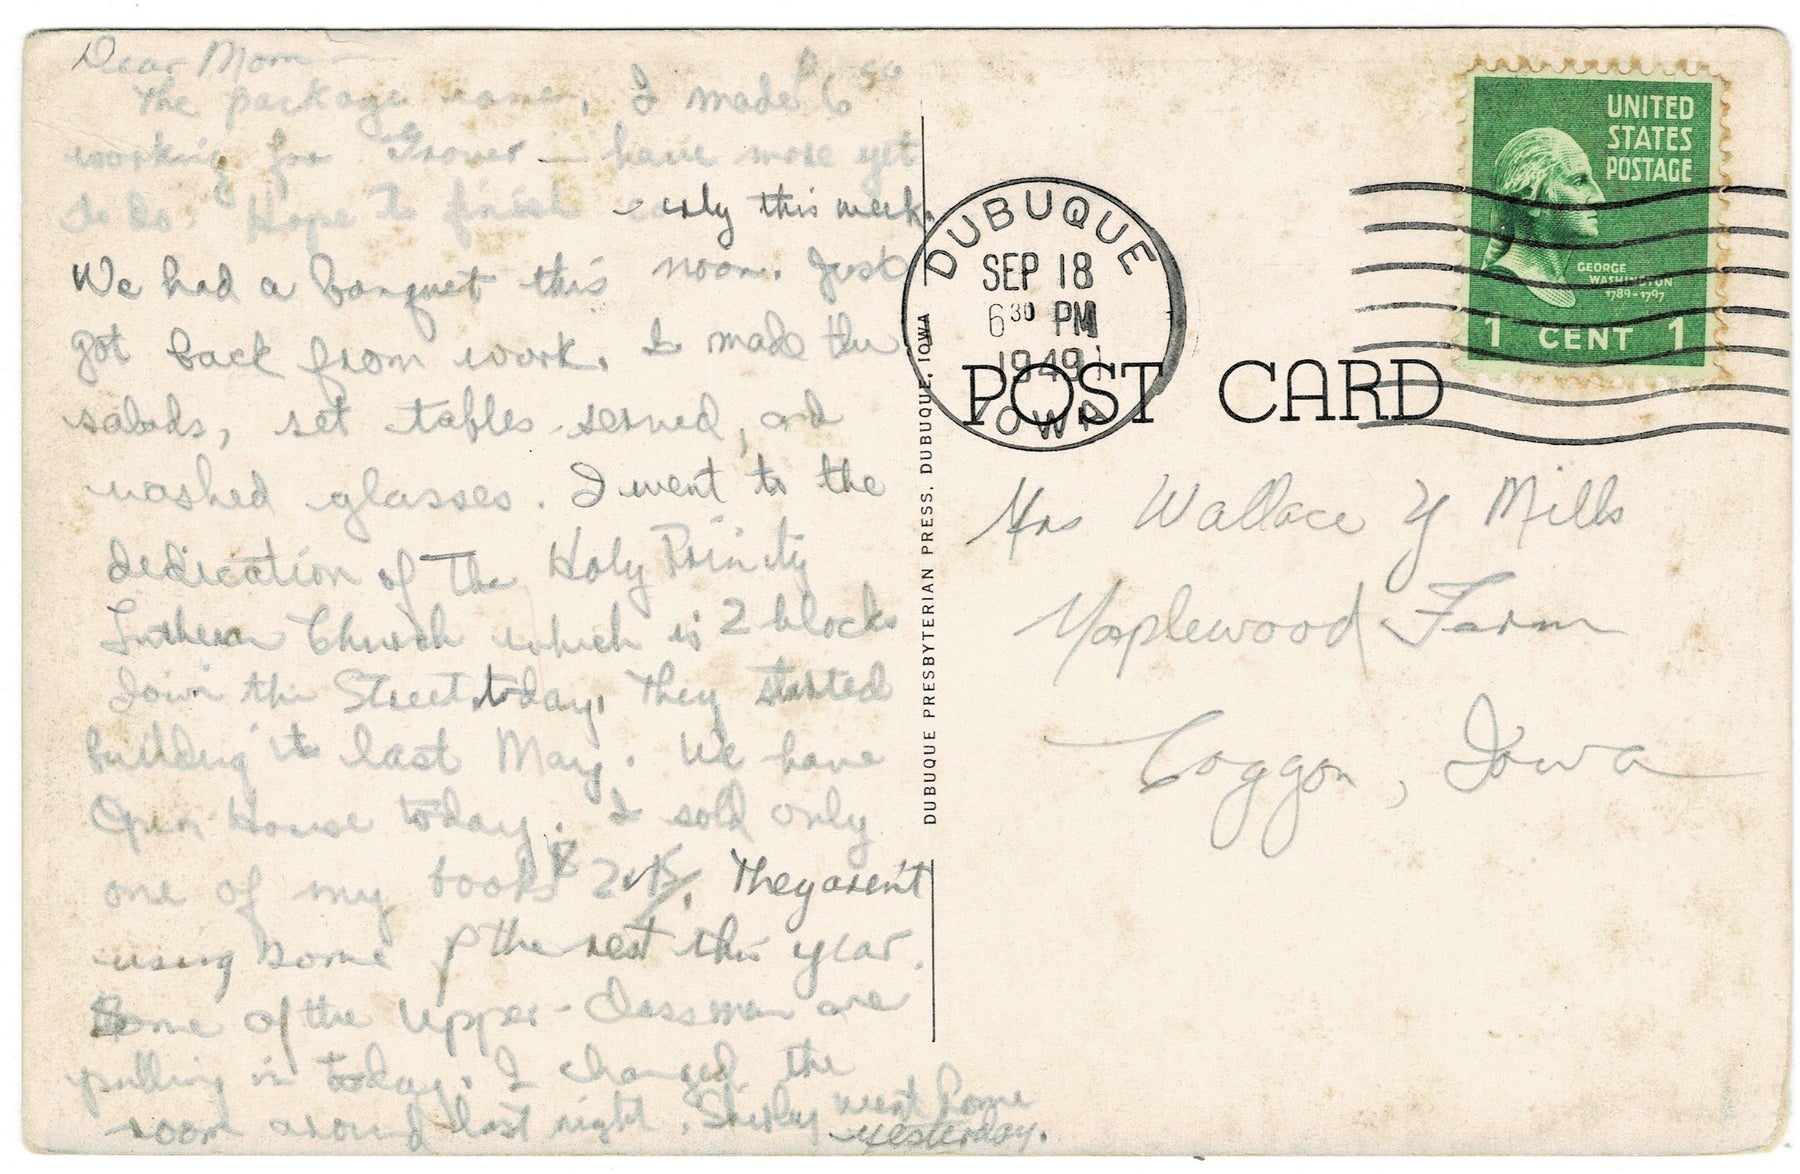 Dear Mom —
The package came. I made $6.50
working for Grover — have more yet
to do. Hope to finish early this week.
We had a banquet this noon. Just
got back from work. I made the
salads, set tables served, and
washed glasses. I went to the
dedication of The Holy Trinity
Lutheran Church which is 2 blocks
down the Street today. They started
building it last May. We have
Open House today. I sold only
one of my books
They aren't
using some of the rest this year.
Some of the Upper-Classman are
pulling in today. I changed the
room around last night. Shirley went home
yesterday.
DUBUQUE PRESBYTERIAN PRESS, DUBUQUE, IOWA
DUBUQUE
SEP 18
6 30 PM
1949
IOWA
UNITED
STATES
POSTAGE
GEORGE
WASHINGTON
1789-1797
1 CENT 1
POST CARD
Mrs Wallace Y Mills
Maplewood Farm
Coggon, Iowa